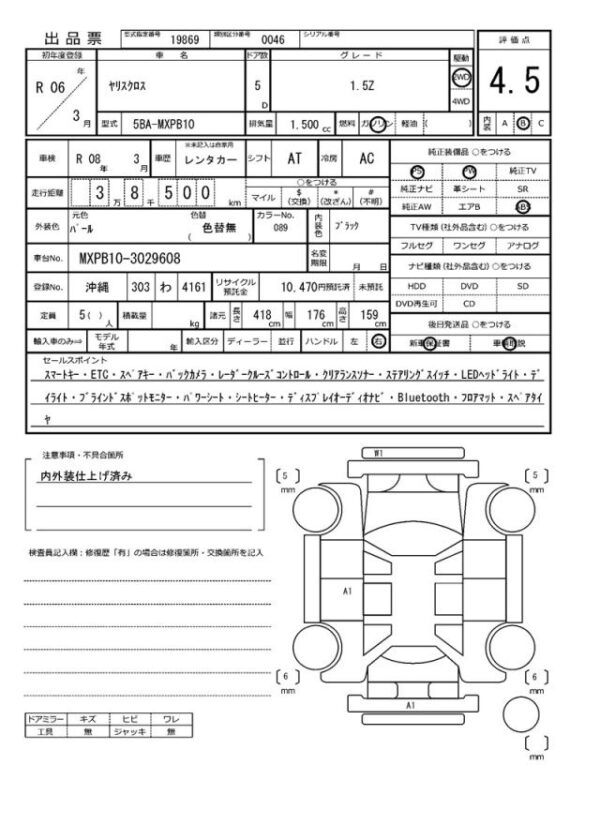 出品票 型式指定番号 19869 類別区分番号 0046 シリアル番号
評価点
4.5
内装 A B C
初年度登録 車名 ドア数 グレード 駆動
R 06 年 3 月 ヤリスクロス 5 D 1.5Z 2WD
4WD
型式 5BA-MXPB10 排気量 1,500 cc 燃料 ガソリン 軽油 ( )
車検 R 08 年 3 月 車歴 ※未記入は自家用 レンタカー シフト AT 冷房 AC
走行距離 3 万 8 千 5 0 0 km ○をつける
マイル $ (交換) * (改ざん) # (不明)
外装色 元色 パール 色替 ( 色替無 ) カラーNo. 089 内装色 ブラック
車台No. MXPB10-3029608 名変期限 月 日
登録No. 沖縄 303 わ 4161 リサイクル預託金 10,470円預託済 未預託
定員 5 ( ) 人 積載量 kg 諸元 長さ 418 cm 幅 176 cm 高さ 159 cm
輸入車のみ⇒ モデル年式 年 輸入区分 ディーラー 並行 ハンドル 左 右
純正装備品 ○をつける
PS PW 純正TV
純正ナビ 革シート SR
純正AW エアB ABS
TV種類 (社外品含む) ○をつける
フルセグ ワンセグ アナログ
ナビ種類 (社外品含む) ○をつける
HDD DVD SD
DVD再生可 CD
後日発送品 ○をつける
新車保証書 車輌取説
セールスポイント
スマートキー・ETC・スペアキー・バックカメラ・レーダークルーズコントロール・クリアランスソナー・ステアリングスイッチ・LEDヘッドライト・デ
イライト・ブラインドスポットモニター・パワーシート・シートヒーター・ディスプレイオーディオナビ・Bluetooth・フロアマット・スペアタイ
ヤ
注意事項・不具合箇所
内外装仕上げ済み
検査員記入欄：修復歴「有」の場合は修復箇所・交換箇所を記入
W1
5 mm
5 mm
A1
6 mm
6 mm
A1
mm
ドアミラー キズ ヒビ ワレ
工具 無 ジャッキ 無